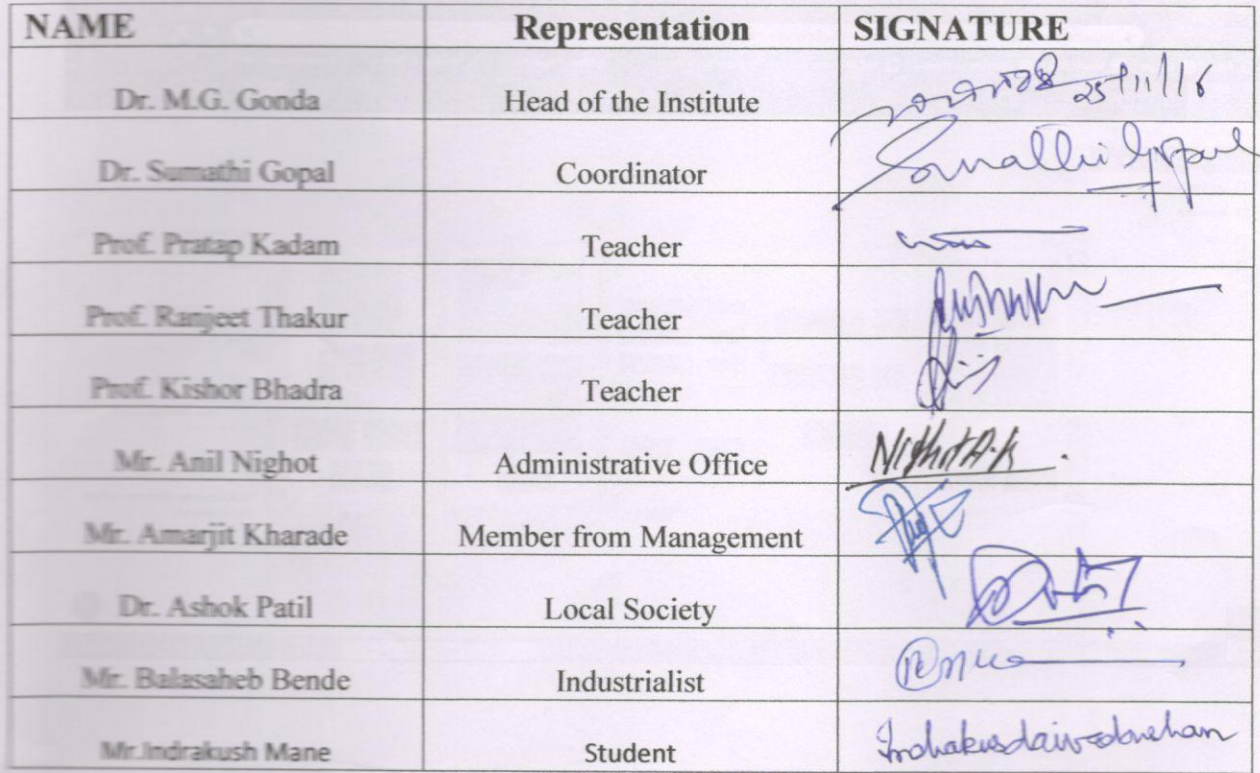 NAME Representation SIGNATURE
Dr. M.G. Gonda Head of the Institute 25/11/16
Dr. Sumathi Gopal Coordinator Sumathi Gopal
Prof. Pratap Kadam Teacher
Prof. Ranjeet Thakur Teacher
Prof. Kishor Bhadra Teacher
Mr. Anil Nighot Administrative Office Nighot A.K
Mr. Amarjit Kharade Member from Management
Dr. Ashok Patil Local Society
Mr. Balasaheb Bende Industrialist
Mr.Indrakush Mane Student